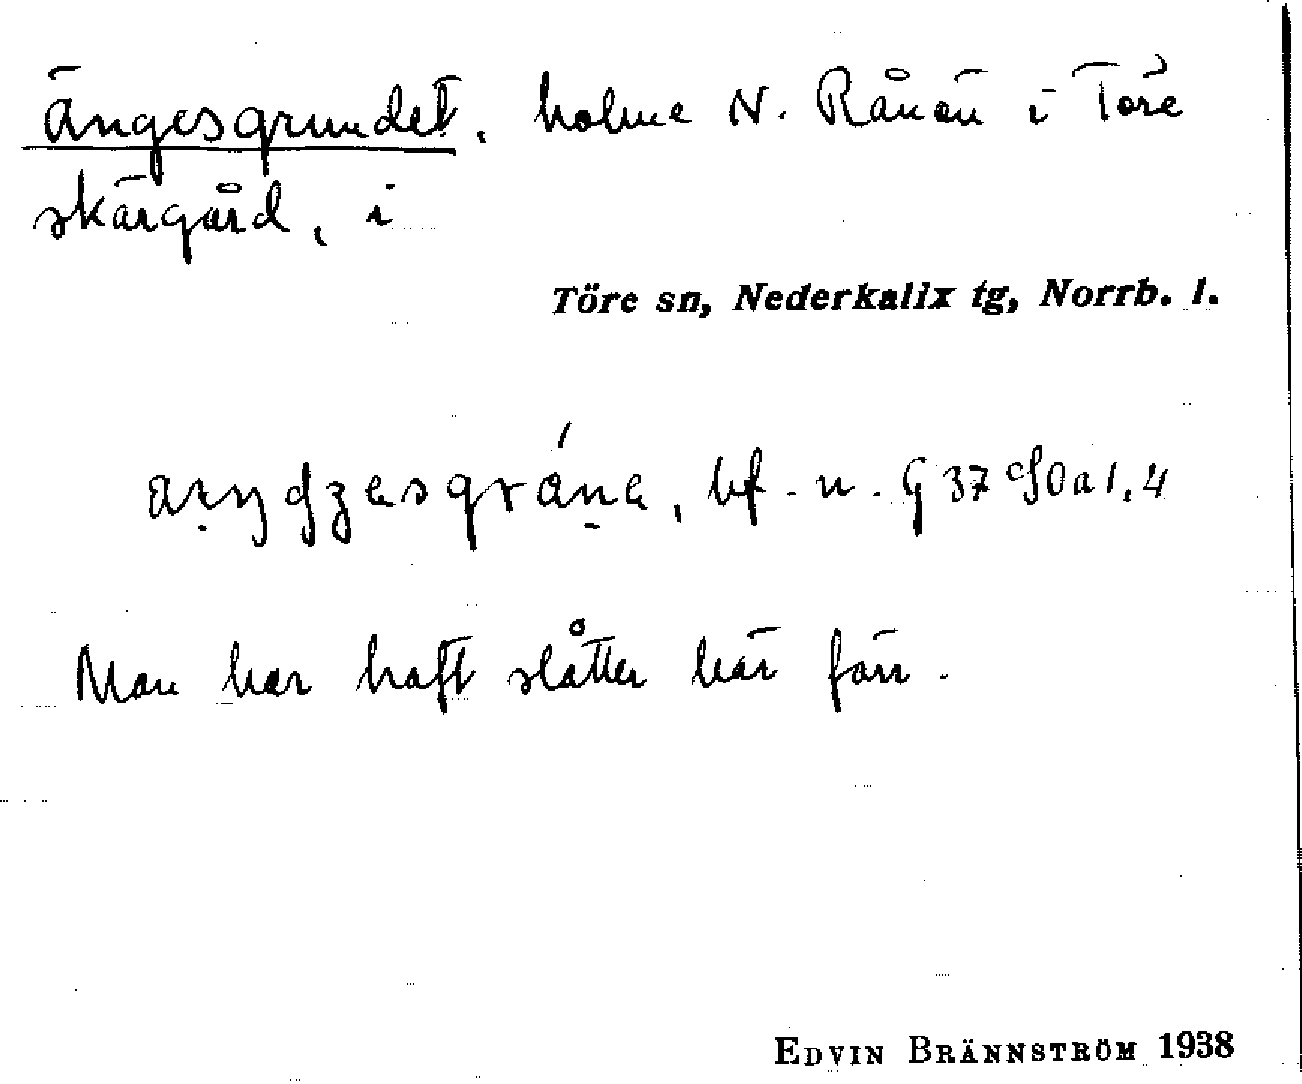 ängesgrundet, holme N. Rånön i Töre
skärgård, i
Töre sn, Nederkalix tg, Norrb. l.
bf. n.
Man har haft slåtter här förr.
EDVIN BRÄNNSTRÖM 1938